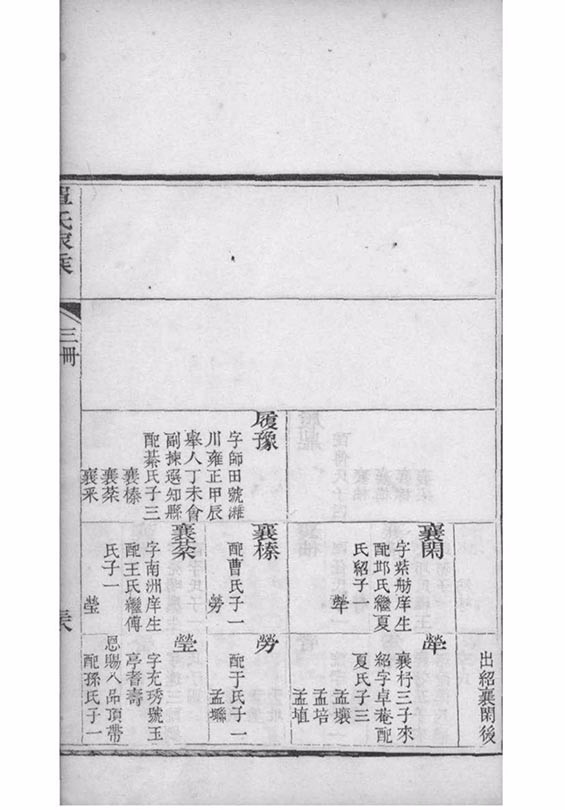 出紹襄閑後
襄閑
字紫舫庠生
配邱氏繼夏
氏紹子一
犖
犖
襄杅三子來
紹字卓菴配
夏氏子三
孟壤
孟培
孟埴
履豫
字師田號濰
川雍正甲辰
舉人丁未會
副揀選知縣
配綦氏子三
襄榛
襄棻
襄釆
襄榛
配曹氏子一
勞
勞
配于氏子一
孟聯
襄棻
字南洲庠生
配王氏繼傅
氏子一
塋
塋
字充琇號玉
亭耆壽
恩賜八品頂帶
配孫氏子一
氏家乘
三冊